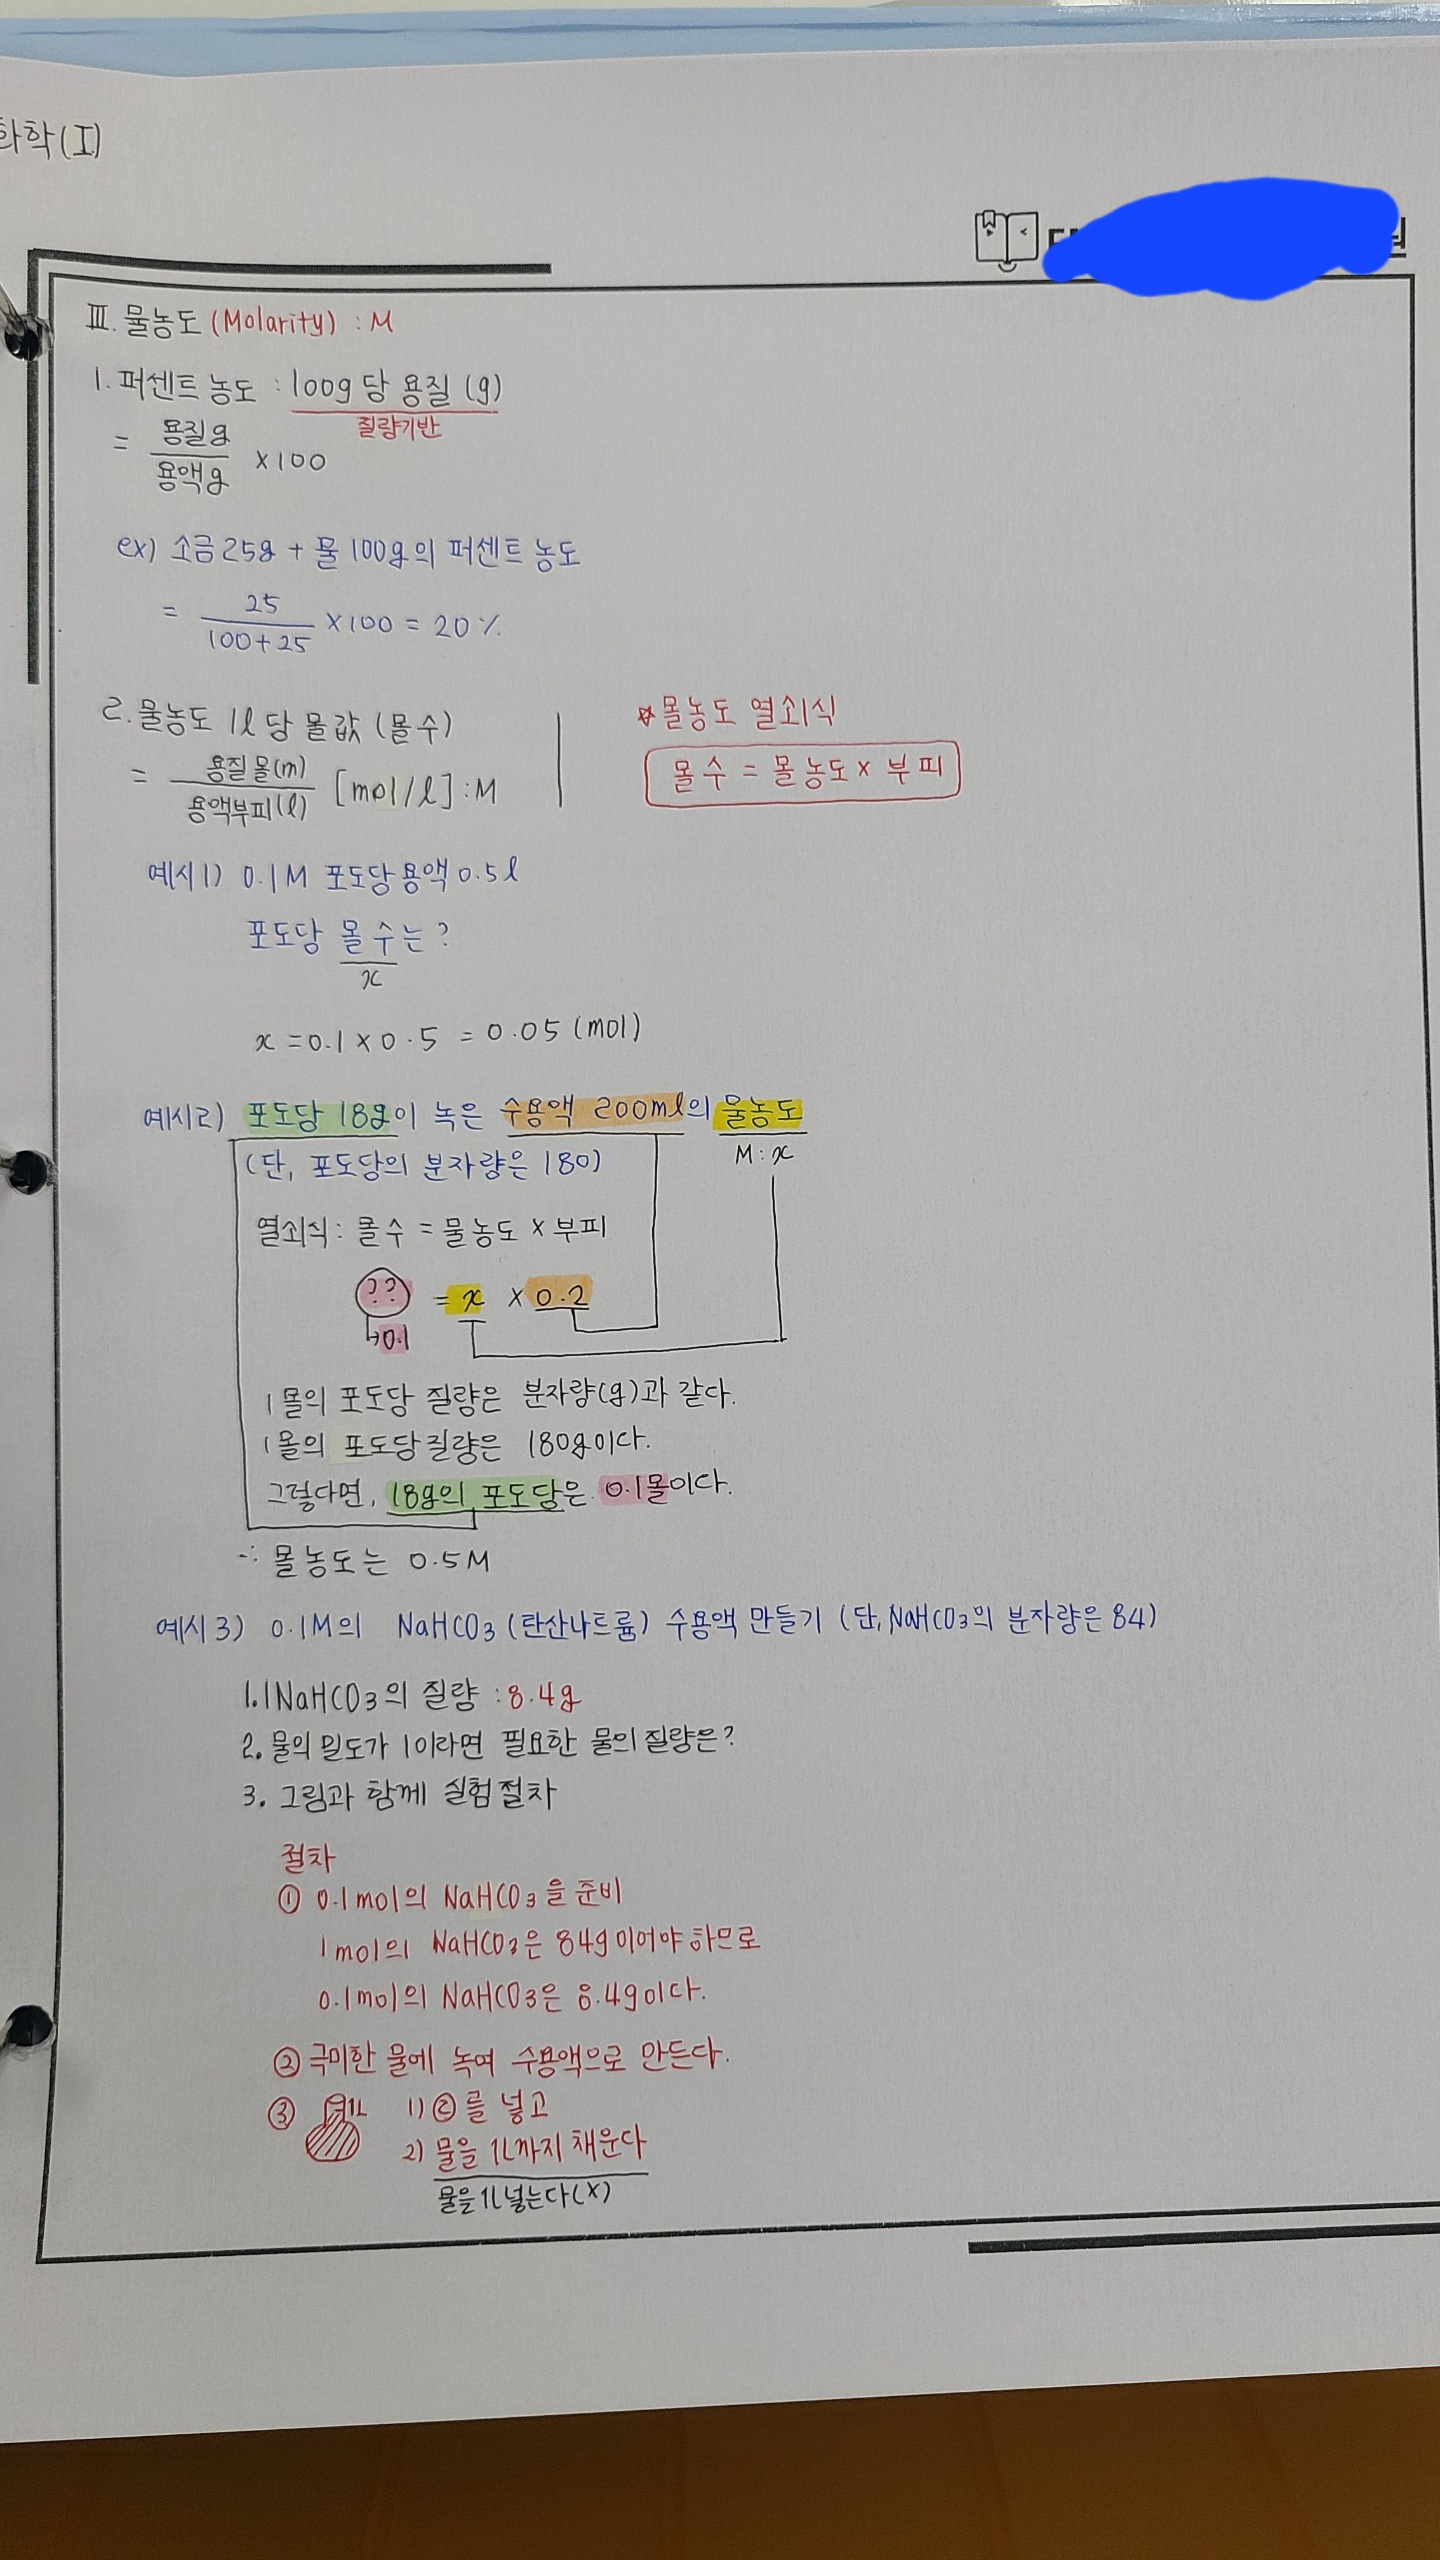 화학(I)
Ⅲ. 몰농도 (Molarity) : M
1. 퍼센트 농도 : 100g 당 용질 (g)
질량기반
= 용질g / 용액g ×100
ex) 소금 25g + 물 100g의 퍼센트 농도
= 25 / 100+25 ×100 = 20%
2. 몰농도 1l 당 몰값 (몰수)
= 용질몰(m) / 용액부피(l) [mol/l] : M
☆몰농도 열쇠식
몰수 = 몰농도 × 부피
예시1) 0.1M 포도당용액 0.5l
포도당 몰수는?
x
x = 0.1 × 0.5 = 0.05 (mol)
예시2) 포도당 18g이 녹은 수용액 200ml의 몰농도
M : x
(단, 포도당의 분자량은 180)
열쇠식 : 몰수 = 몰농도 × 부피
?? = x × 0.2
→0.1
1몰의 포도당 질량은 분자량(g)과 같다.
1몰의 포도당질량은 180g이다.
그렇다면, 18g의 포도당은 0.1몰이다.
∴ 몰농도는 0.5M
예시3) 0.1M의 NaHCO3 (탄산나트륨) 수용액 만들기 (단, NaHCO3의 분자량은 84)
1. 1NaHCO3의 질량 : 8.4g
2. 물의 밀도가 1이라면 필요한 물의 질량은?
3. 그림과 함께 실험절차
절차
① 0.1mol의 NaHCO3을 준비
1mol의 NaHCO3은 84g이어야 하므로
0.1mol의 NaHCO3은 8.4g이다.
② 극미한 물에 녹여 수용액으로 만든다.
③ 1L 1) ②를 넣고
2) 물을 1L까지 채운다
물을 1L 넣는다(X)